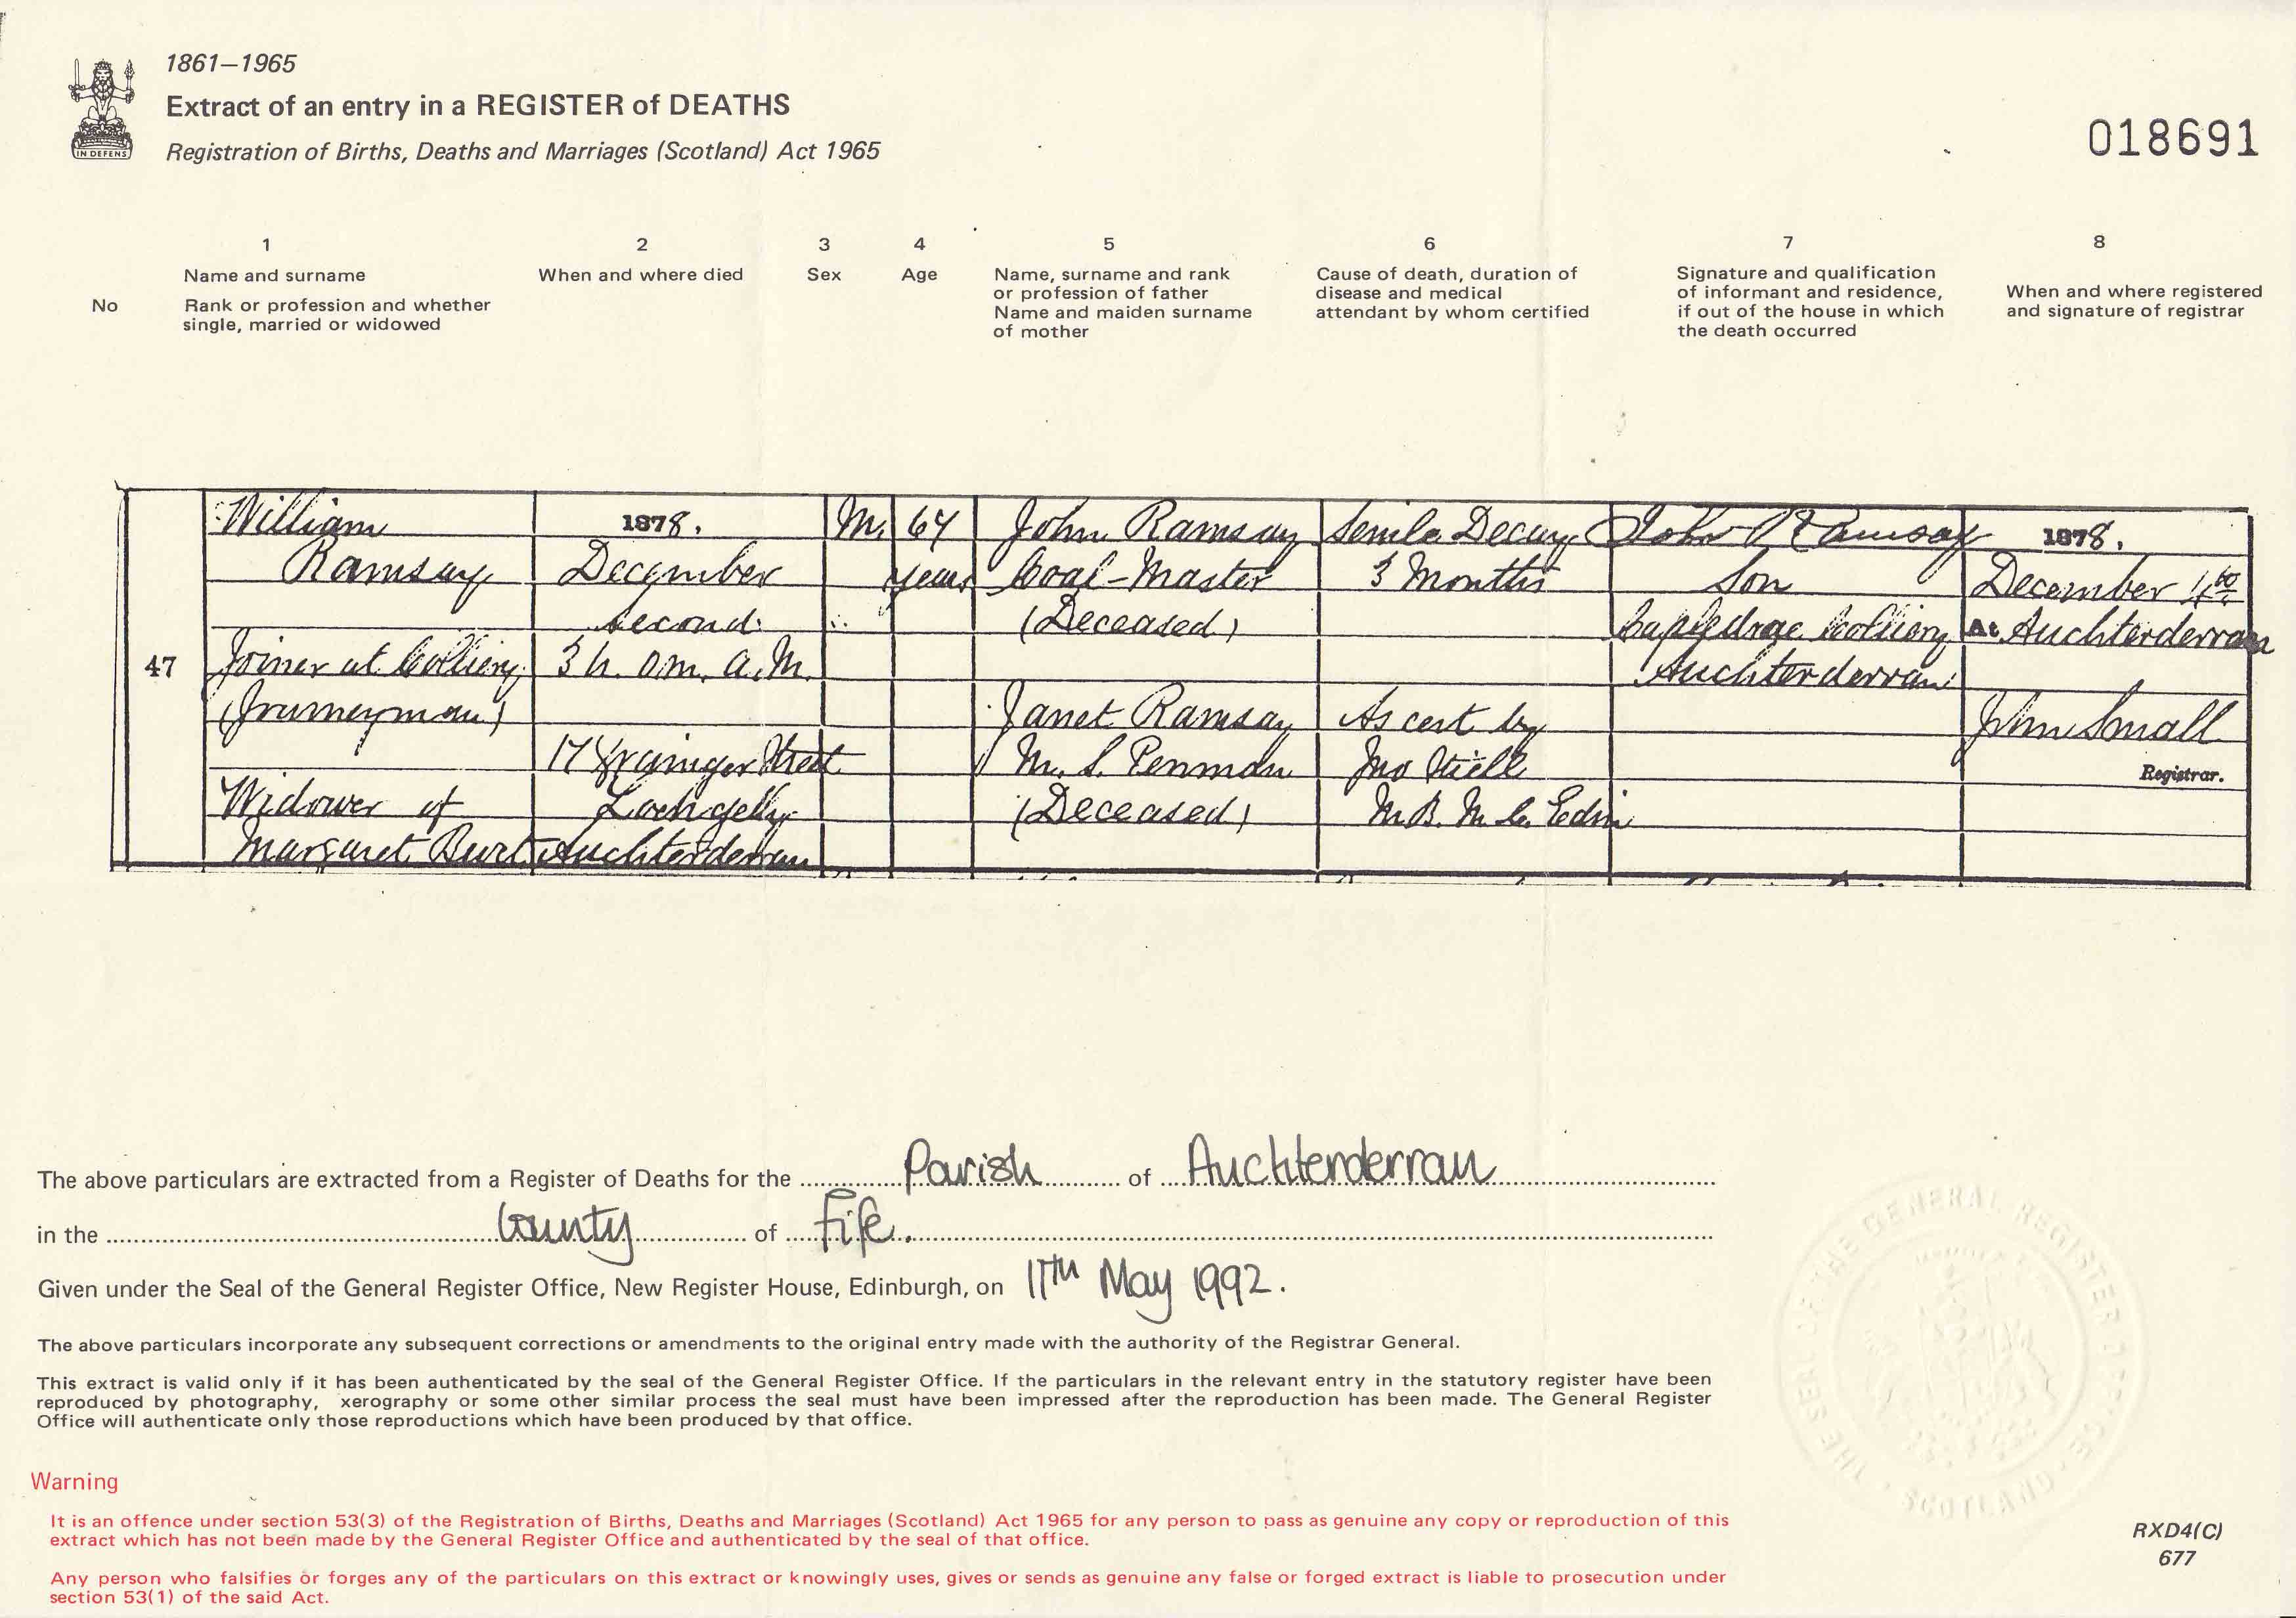 1861–1965
Extract of an entry in a REGISTER of DEATHS
Registration of Births, Deaths and Marriages (Scotland) Act 1965
IN DEFENS
018691
1
Name and surname
Rank or profession and whether
single, married or widowed
No
2
When and where died
3
Sex
4
Age
5
Name, surname and rank
or profession of father
Name and maiden surname
of mother
6
Cause of death, duration of
disease and medical
attendant by whom certified
7
Signature and qualification
of informant and residence,
if out of the house in which
the death occurred
8
When and where registered
and signature of registrar
47
William
Ramsay
Joiner at Colliery
(Journeyman)
Widower of
Margaret Burt
1878.
December
second.
3 h. 0 m. A.M.
17 Grainger Street
Lochgelly
Auchterderran
M.
67
years
John Ramsay
Coal-Master
(Deceased)
Janet Ramsay
M. S. Penman
(Deceased)
Senile Decay
3 Months
As cert by
Jno
M.B. M.C. Edin
John Ramsay
Son
Colliery
Auchterderran
1878.
December 4th
At Auchterderran
John Small
Registrar.
The above particulars are extracted from a Register of Deaths for the Parish of Auchterderran
in the County of Fife.
Given under the Seal of the General Register Office, New Register House, Edinburgh, on 11th May 1992.
The above particulars incorporate any subsequent corrections or amendments to the original entry made with the authority of the Registrar General.
This extract is valid only if it has been authenticated by the seal of the General Register Office. If the particulars in the relevant entry in the statutory register have been
reproduced by photography, xerography or some other similar process the seal must have been impressed after the reproduction has been made. The General Register
Office will authenticate only those reproductions which have been produced by that office.
THE SEAL OF THE GENERAL REGISTER OFFICE · SCOTLAND ·
Warning
It is an offence under section 53(3) of the Registration of Births, Deaths and Marriages (Scotland) Act 1965 for any person to pass as genuine any copy or reproduction of this
extract which has not been made by the General Register Office and authenticated by the seal of that office.
Any person who falsifies or forges any of the particulars on this extract or knowingly uses, gives or sends as genuine any false or forged extract is liable to prosecution under
section 53(1) of the said Act.
RXD4(C)
677